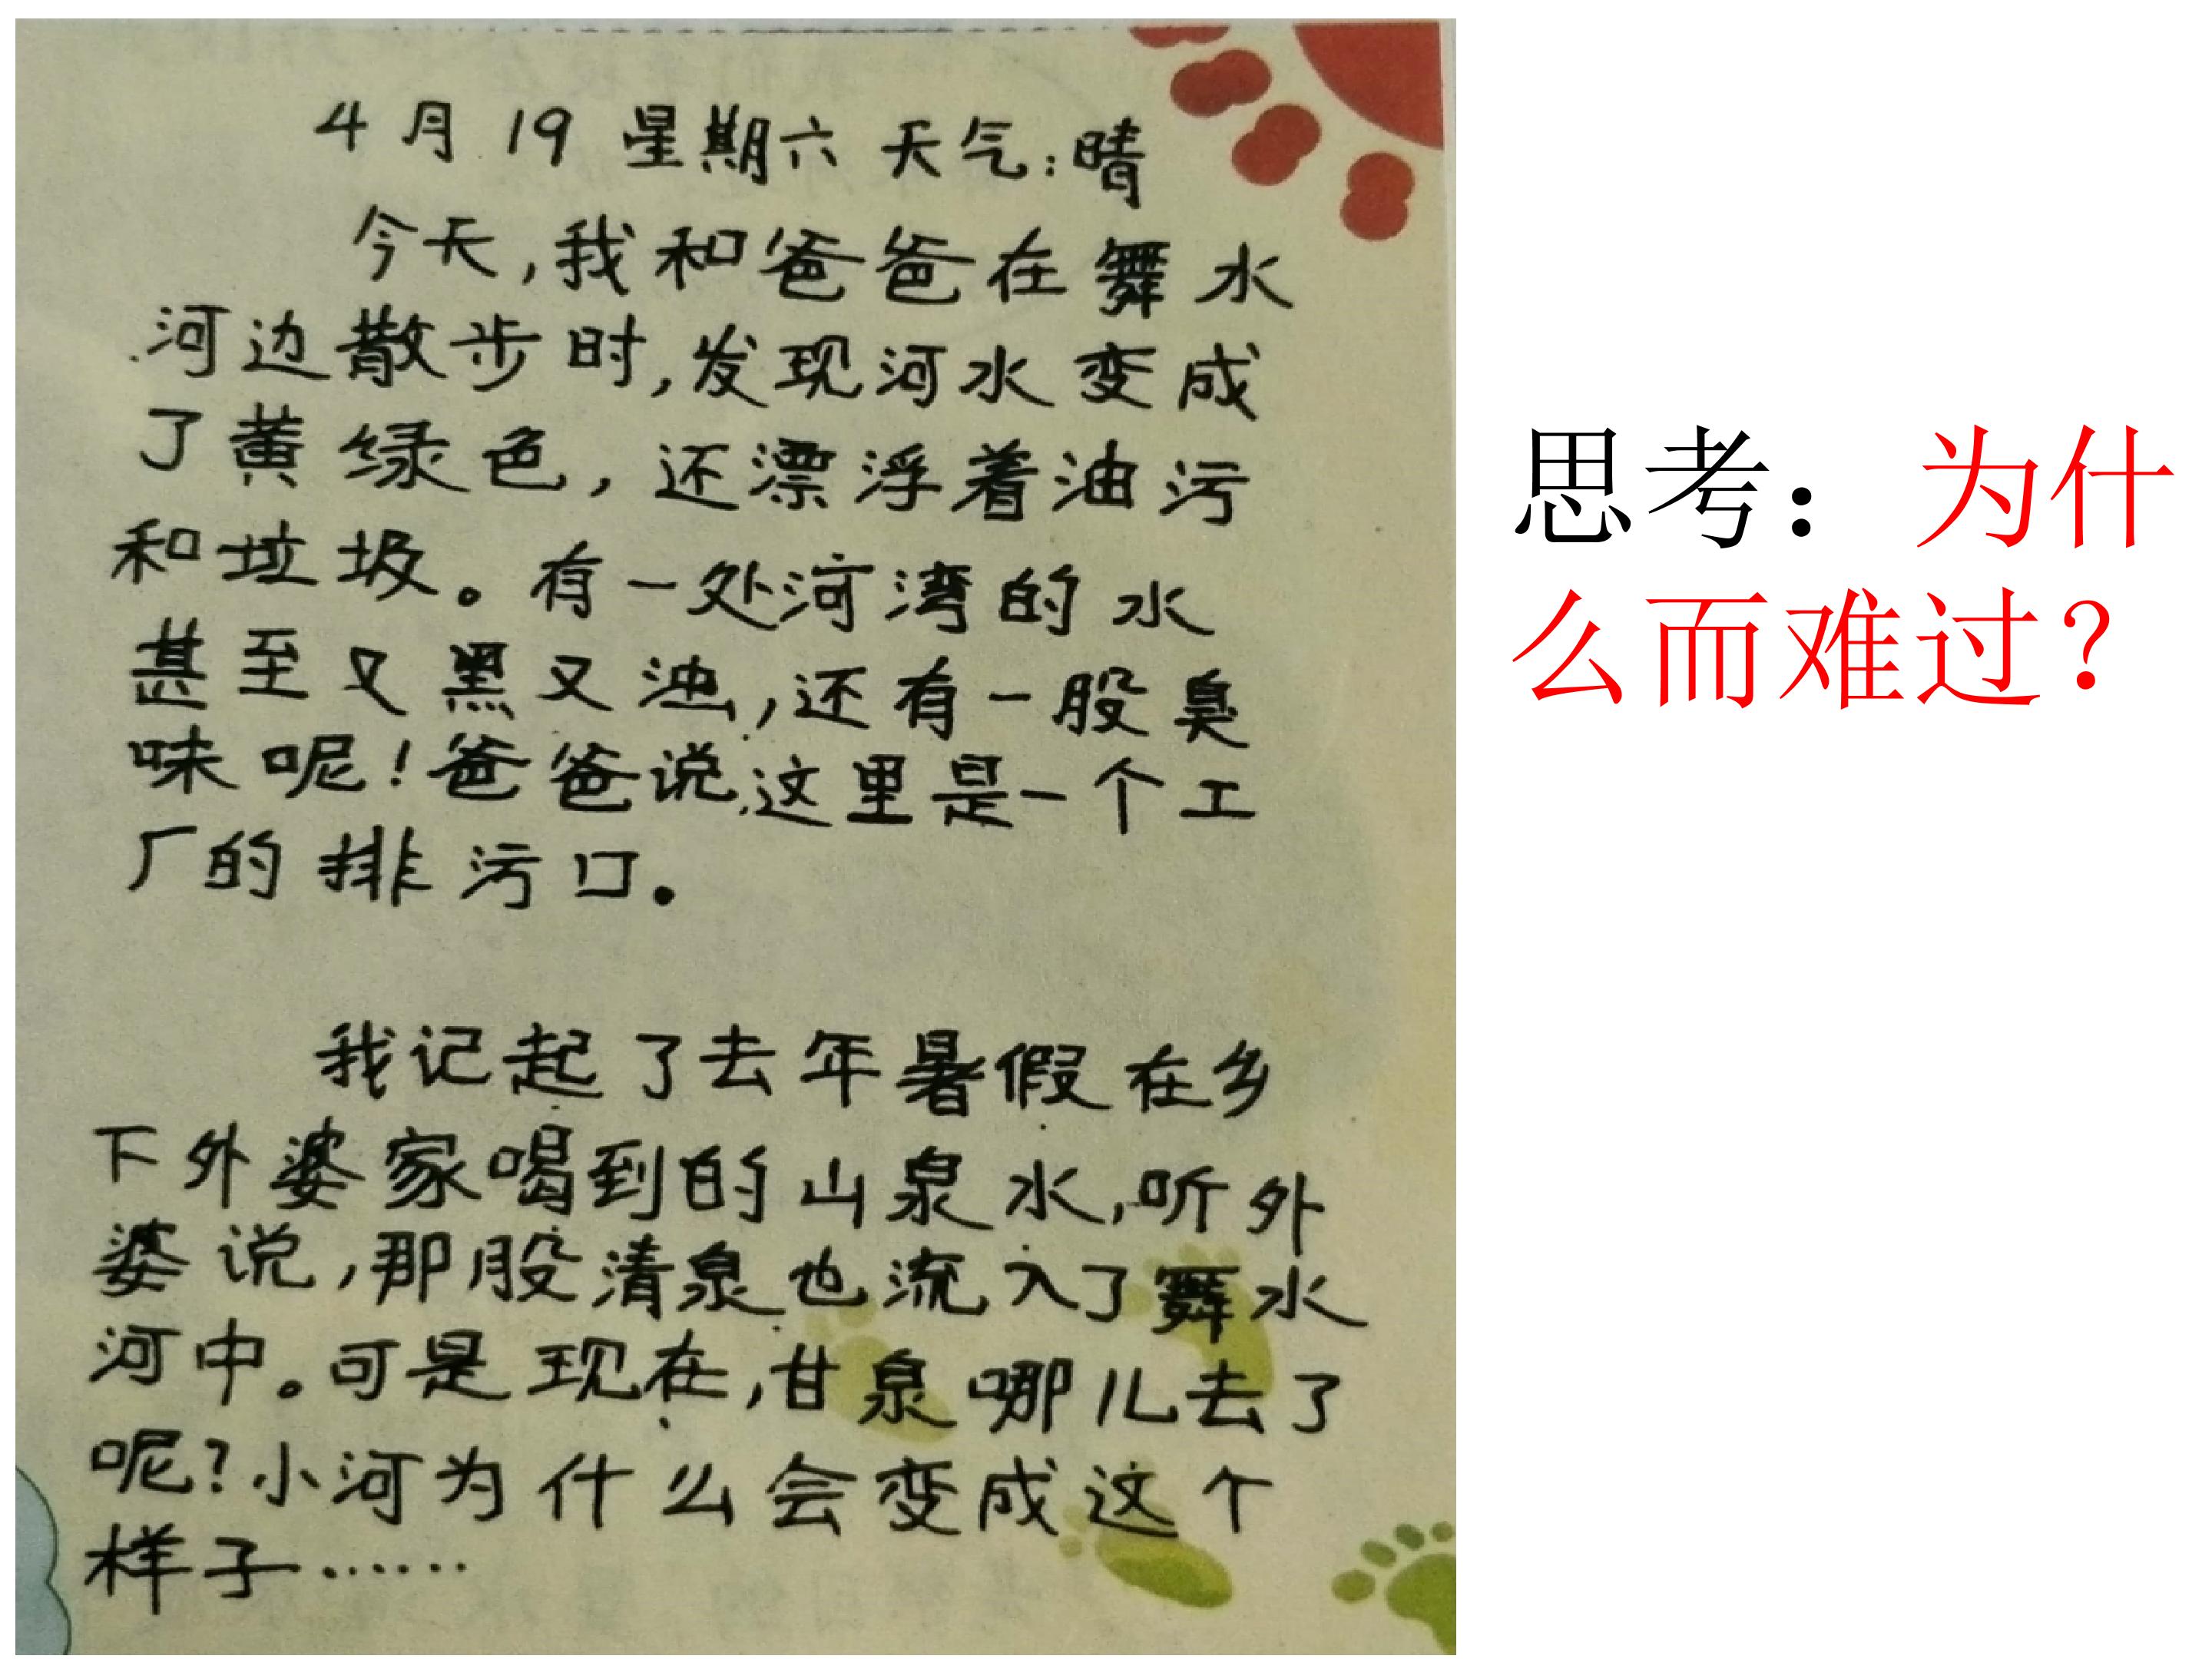 4月19 星期六 天气:晴
今天,我和爸爸在舞水
河边散步时,发现河水变成
了黄绿色,还漂浮着油污
和垃圾。有一处河湾的水
甚至又黑又浊,还有一股臭
味呢!爸爸说,这里是一个工
厂的排污口。
我记起了去年暑假在乡
下外婆家喝到的山泉水,听外
婆说,那股清泉也流入了舞水
河中。可是现在,甘泉哪儿去了
呢?小河为什么会变成这个
样子……
思考：为什
么而难过？